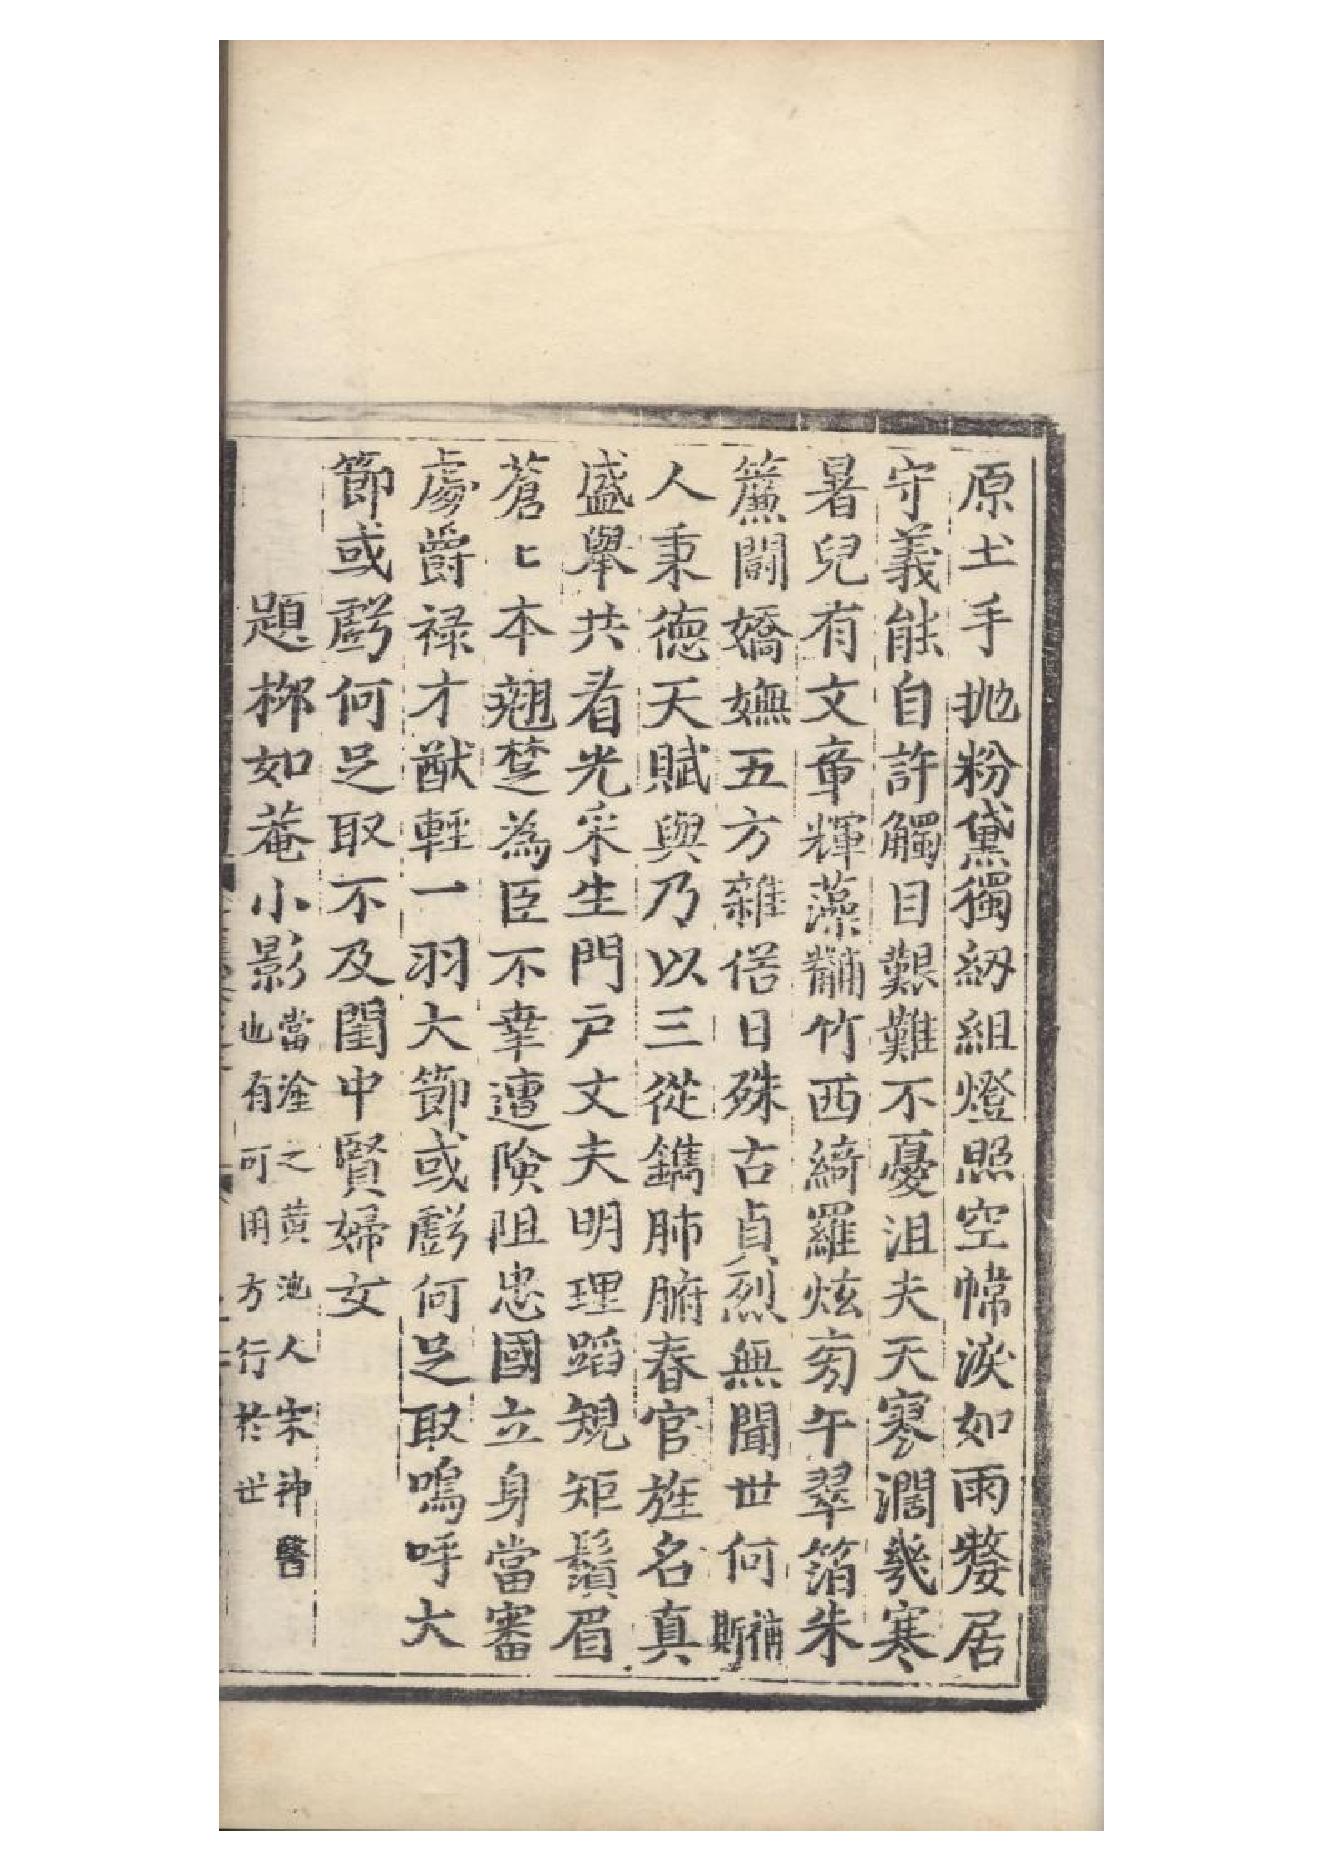 原土手抛粉黛獨紉組燈照空幃淚如雨嫠居
守義能自許觸目艱難不憂沮夫天寥濶幾寒
暑兒有文章輝藻黼竹西綺羅炫旁午翠箔朱
簾鬪嬌嫵五方雜偌日殊古貞烈無聞世何補斯
人秉德天賦與乃以三從鐫肺腑春官旌名真
盛舉共看光采生門戶丈夫明理蹈規矩鬚眉
蒼〻本翹楚為臣不幸遭險阻忠國立身當審
處爵祿才猷輕一羽大節或虧何足取嗚呼大
節或虧何足取不及閨中賢婦女
題桞如菴小影當塗之黄池人宋神醫也有可用方行於世